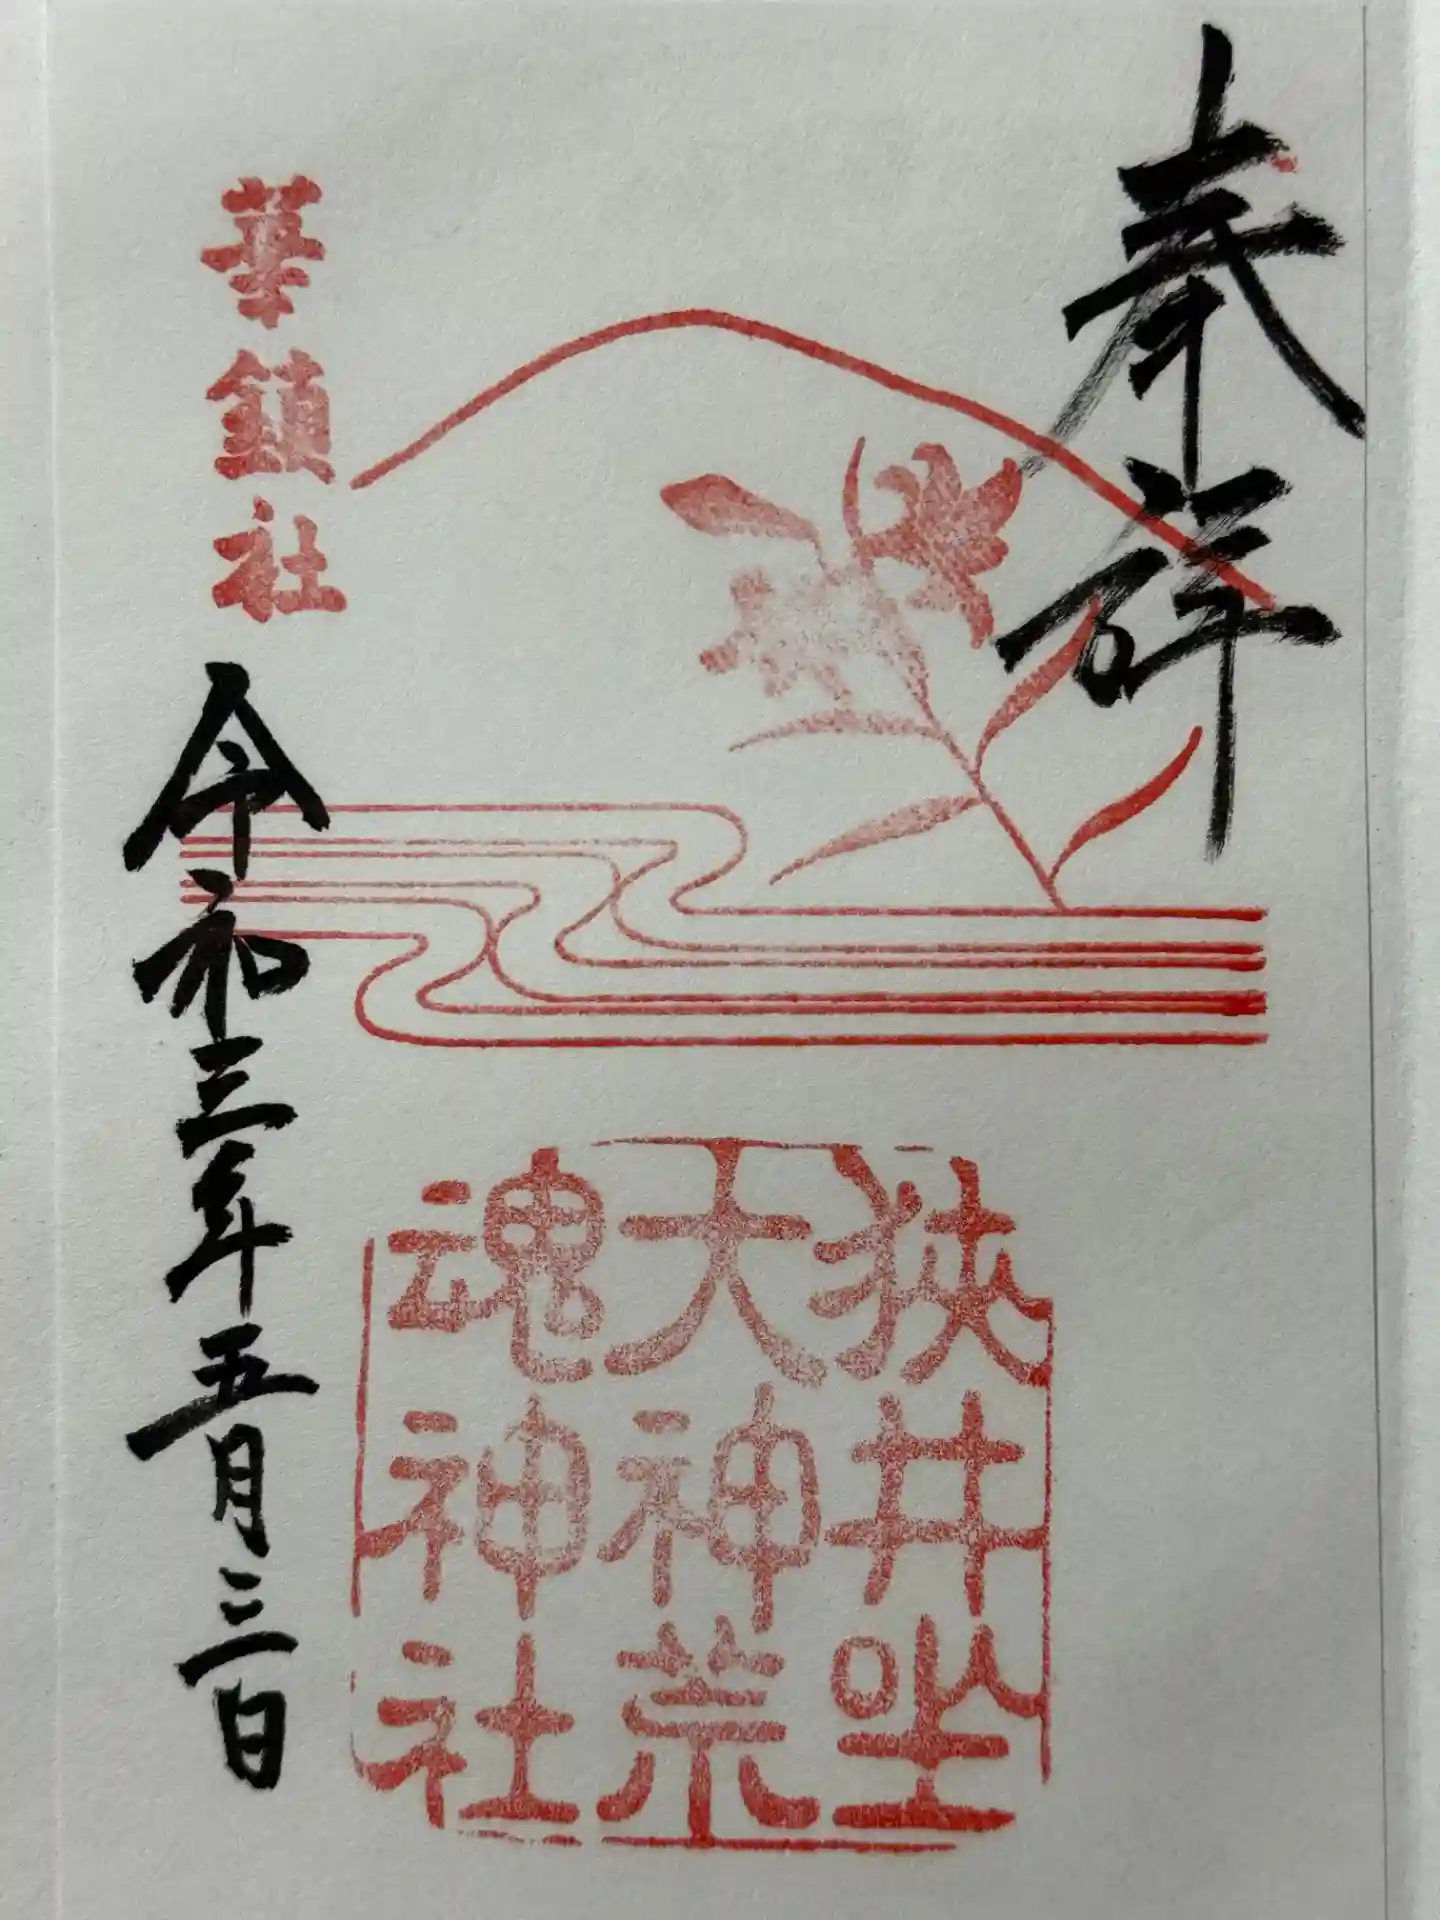 奉拝
狹井坐
大神荒
魂神社
華鎮社
令和三年五月三日